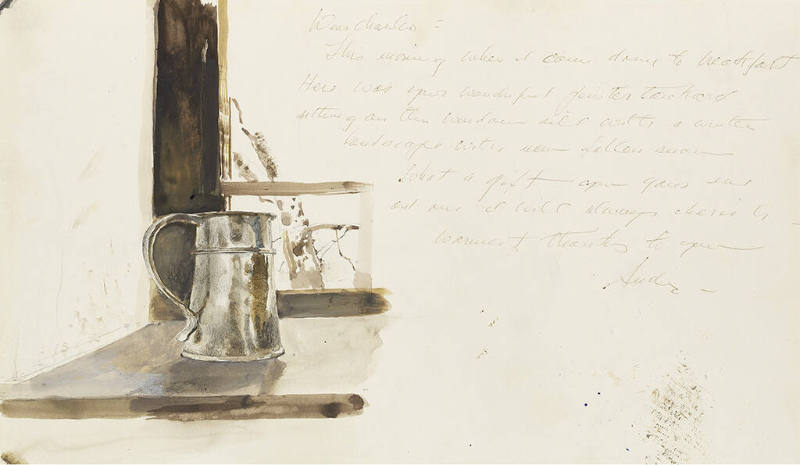 Dear Charles -
This morning when I came down to breakfast
Here was your wonderful pewter tankard
sitting on the window sill with a winter
landscape with new fallen snow
What a gift you gave me
and one I will always cherish -
warmest thanks to you
Andy -